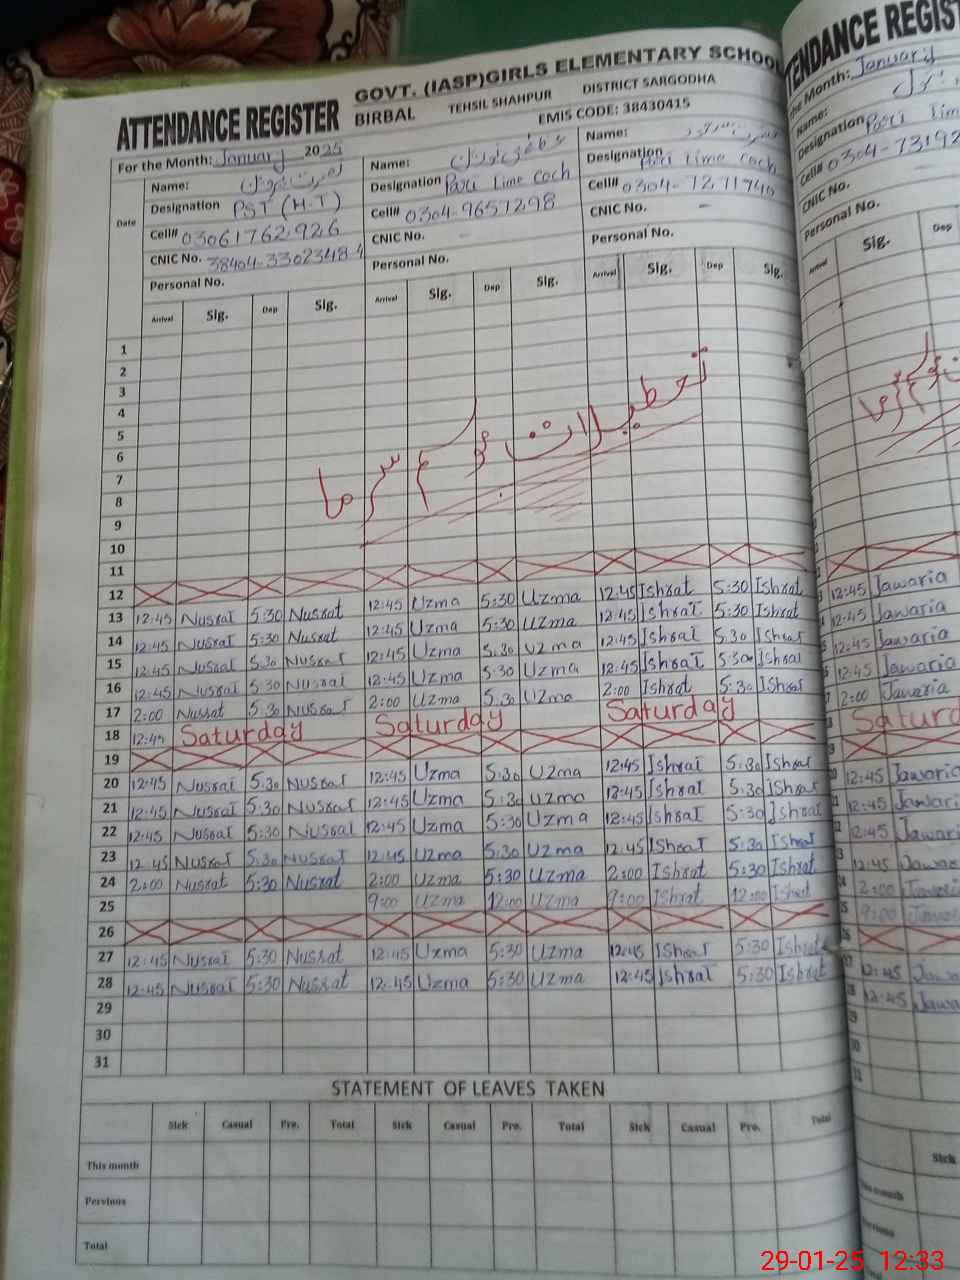 ATTENDANCE REGISTER
GOVT. (IASP)GIRLS ELEMENTARY SCHOOL
BIRBAL TEHSIL SHAHPUR DISTRICT SARGODHA
EMIS CODE: 38430415
For the Month: January 2025
Date
Name: نصرت نورین
Designation PST (H.T)
Cell# 03061762926
CNIC No. 38404-3302348-4
Personal No.
Name: عظمیٰ نورین
Designation Part time coch
Cell# 0304-9657298
CNIC No. -
Personal No.
Name:
Designation Part time coch
Cell# 0304-7271740
CNIC No. -
Personal No.
Arrival Sig. Dep Sig. Arrival Sig. Dep Sig. Arrival Sig. Dep Sig.
1
2
3
4
5
6
7
8
9
10
تعطیلات موسم سرما
11
12
13 12:45 Nusrat 5:30 Nusrat 12:45 Uzma 5:30 Uzma 12:45 Ishrat 5:30 Ishrat
14 12:45 Nusrat 5:30 Nusrat 12:45 Uzma 5:30 Uzma 12:45 Ishrat 5:30 Ishrat
15 12:45 Nusrat 5:30 Nusrat 12:45 Uzma 5:30 Uzma 12:45 Ishrat 5:30 Ishrat
16 12:45 Nusrat 5:30 Nusrat 12:45 Uzma 5:30 Uzma 12:45 Ishrat 5:30 Ishrat
17 2:00 Nusrat 5:30 Nusrat 2:00 Uzma 5:30 Uzma 2:00 Ishrat 5:30 Ishrat
18 12:45 Saturday Saturday Saturday
19
20 12:45 Nusrat 5:30 Nusrat 12:45 Uzma 5:30 Uzma 12:45 Ishrat 5:30 Ishrat
21 12:45 Nusrat 5:30 Nusrat 12:45 Uzma 5:30 Uzma 12:45 Ishrat 5:30 Ishrat
22 12:45 Nusrat 5:30 Nusrat 12:45 Uzma 5:30 Uzma 12:45 Ishrat 5:30 Ishrat
23 12:45 Nusrat 5:30 Nusrat 12:45 Uzma 5:30 Uzma 12:45 Ishrat 5:30 Ishrat
24 2:00 Nusrat 5:30 Nusrat 2:00 Uzma 5:30 Uzma 2:00 Ishrat 5:30 Ishrat
25 9:00 Uzma 12:00 Uzma 9:00 Ishrat 12:00 Ishrat
26
27 12:45 Nusrat 5:30 Nusrat 12:45 Uzma 5:30 Uzma 12:45 Ishrat 5:30 Ishrat
28 12:45 Nusrat 5:30 Nusrat 12:45 Uzma 5:30 Uzma 12:45 Ishrat 5:30 Ishrat
29
30
31
STATEMENT OF LEAVES TAKEN
Sick Casual Pre. Total Sick Casual Pre. Total Sick Casual Pre. Total
This month
Pervious
Total
Month: January
Name:
Designation
Cell# 0304-7319
CNIC No.
Personal No.
Arrival Sig. Dep
12:45 Jawaria
12:45 Jawaria
12:45 Jawaria
12:45 Jawaria
2:00 Jawaria
12:45 Jawaria
12:45
12:45
12:45
2:00
9:00
12:45
12:45
Sick
29-01-25 12:33